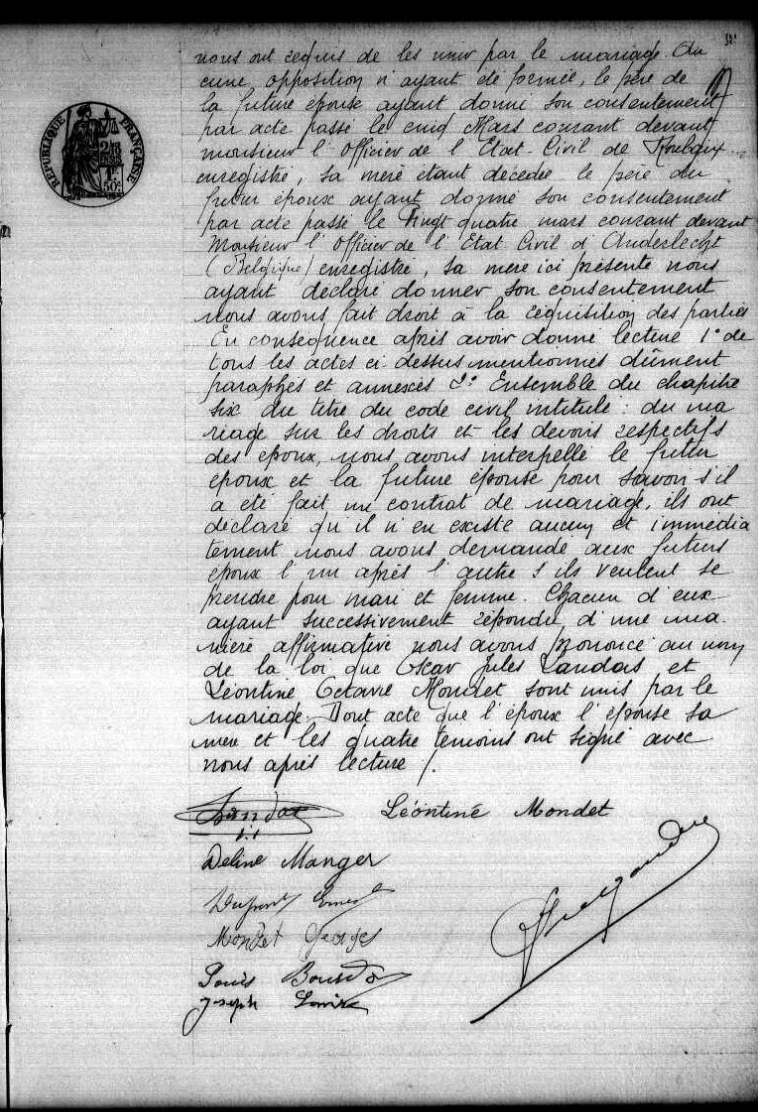 nous ont requis de les unir par le mariage. Au
cune opposition n'ayant été formée, le père de
la future épouse ayant donné son consentement
par acte passé le cinq Mars courant devant
monsieur l'Officier de l'Etat-Civil de Roubaix
enregistré, sa mère étant décédée le père du
futur époux ayant donné son consentement
par acte passé le Vingt quatre mars courant devant
Monsieur l'Officier de l'Etat Civil d'Anderlecht
(Belgique) enregistré, sa mère ici présente nous
ayant déclaré donner son consentement
nous avons fait droit à la réquisition des parties
En conséquence après avoir donné lecture 1° de
tous les actes ci-dessus mentionnés dûment
paraphés et annexés 2° Ensemble du chapitre
six du titre du code civil intitulé : du ma
riage sur les droits et les devoirs respectifs
des époux, nous avons interpellé le futur
époux et la future épouse pour savoir s'il
a été fait un contrat de mariage, ils ont
déclaré qu'il n'en existe aucun et immédia
tement nous avons demandé aux futurs
époux l'un après l'autre s'ils veulent se
prendre pour mari et femme. Chacun d'eux
ayant successivement répondu d'une ma
nière affirmative nous avons prononcé au nom
de la loi que Oscar Jules Landas et
Léontine Octavie Mondet sont unis par le
mariage. Dont acte que l'époux l'épouse sa
mère et les quatre témoins ont signé avec
nous après lecture /.
Landas Léontine Mondet
Deline Manger
Dupont Ernest
Mondet Georges
Louis
Joseph
REPUBLIQUE FRANÇAISE